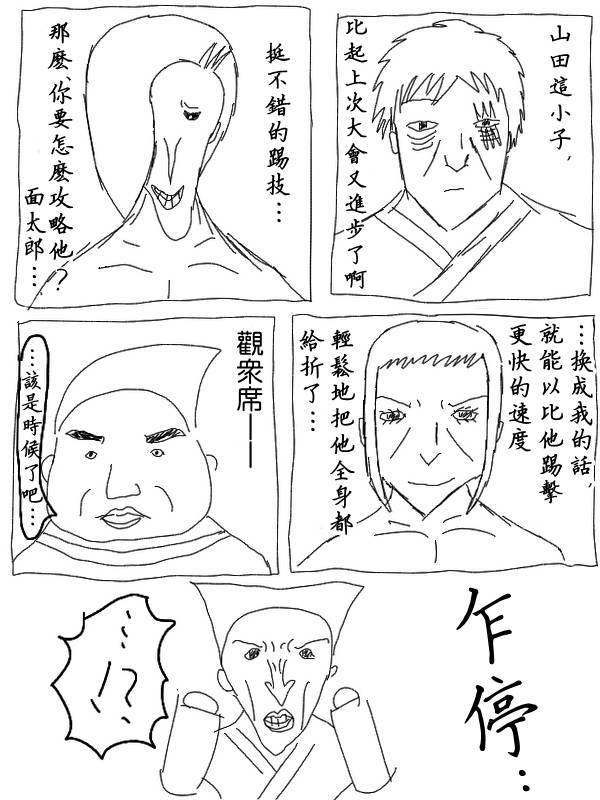 山田這小子，
比起上次大會又進步了啊
挺不錯的踢技…
那麼、你要怎麼攻略他？
面太郎…
…換成我的話，
就能以比他踢擊
更快的速度
輕鬆地把他全身都
給折了…
觀眾席——
…該是時候了吧…
乍停…
…！？